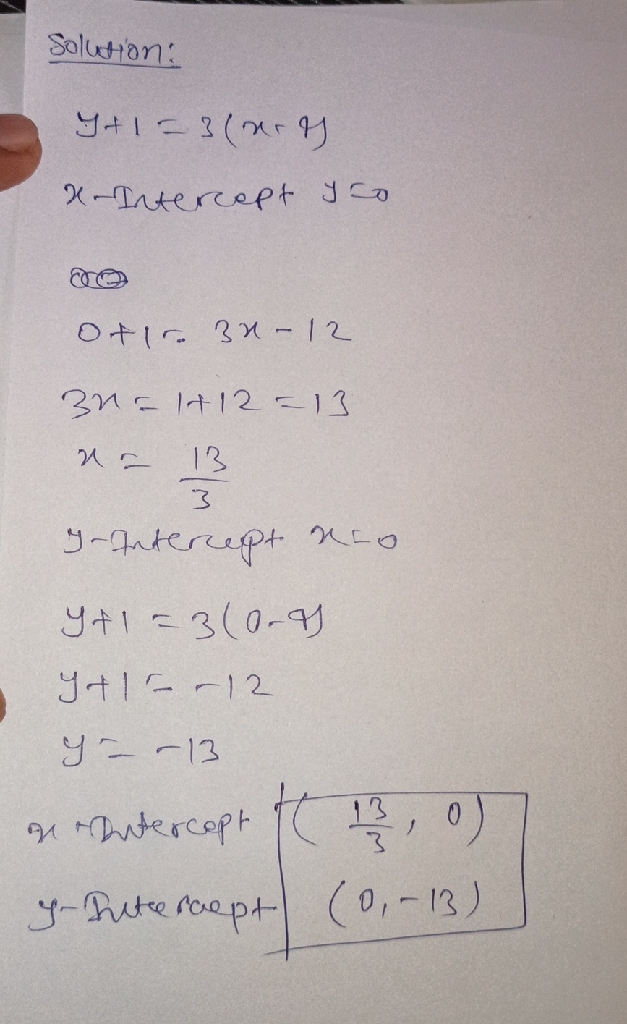 Solution:
y+1 = 3(x-4)
x-Intercept y=0
0+1= 3x-12
3x = 1+12 = 13
x = 13/3
y-Intercept x=0
y+1 = 3(0-4)
y+1 = -12
y = -13
x-Intercept (13/3, 0)
y-Intercept (0,-13)